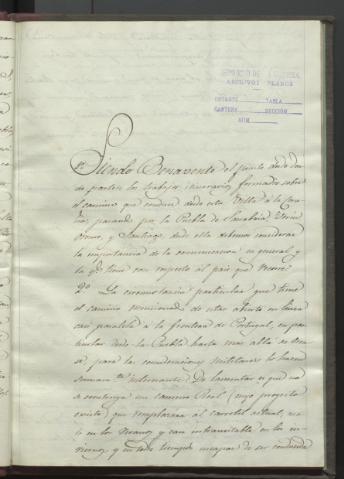 DEPOSITO DE LA GUERRA
ARCHIVO DE PLANOS
ESTANTE TABLA
CARTERA SECCIÓN
NUM.
1º Siendo Benavente el punto desde don-
de parten los trabajos itinerarios formados sobre
el camino que conduce desde esta Villa á la Coru-
ña, pasando por la Puebla de Sanabria,
Orense, y Santiago, desde ella debemos considerar
la importancia de la comunicacion en general y
la que tiene con respecto al pais que recorre
2º La circunstancia particular que tiene
el camino mencionado de estar abierto en linea
casi paralela á la frontera de Portugal, en par-
ticular desde la Puebla hasta mas allá de Oren-
se, para las consideraciones militares lo hacen
sumamte interesante. De lamentar es qe no
se construya un camino Real (cuyo proyecto
existe) que remplazara al carretil actual, ma-
lo en los veranos y casi intransitable en los in-
viernos y en todo tiempo incapaz de ser conducida